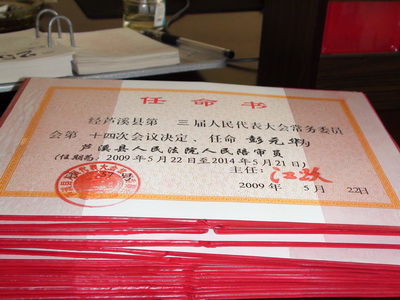 任命书
经芦溪县第 三届人民代表大会常务委员
会第 十四次会议决定，任命 彭元华为
芦溪县人民法院人民陪审员
(任期为：2009年5月22日至2014年5月21日)
主任：
2009年 5月 22日